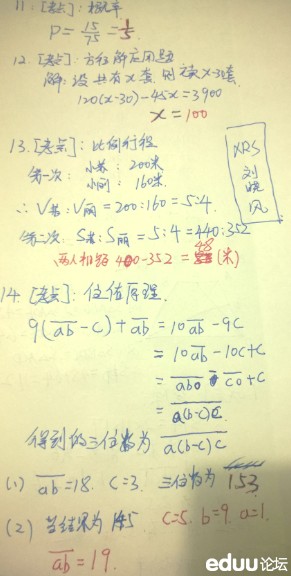 11. [考点]: 概率
P = 15/75 = 1/5
12. [考点]: 方程解应用题
解: 设共有x套, 则 x-30套
120(x-30)-45x=3900
x = 100
13. [考点]: 比例行程
第一次: 小苏: 200米
小丽: 160米
∴ V苏: V丽 = 200:160 = 5:4.
第二次: S苏: S丽 = 5:4 = 440:352
两人相距 400-352 = 48 (米)
XRS
刘晓风
14. [考点]: 位值原理
9(ab-c)+ab = 10ab-9c
= 10ab-10c+c
= ab0 - c0 + c
= a(b-c)c
得到的三位数为 a(b-c)c
(1) ab=18. c=3. 三位数为 153
(2) 若结果为 145 c=5. b=9. a=1.
ab = 19.
eduu论坛